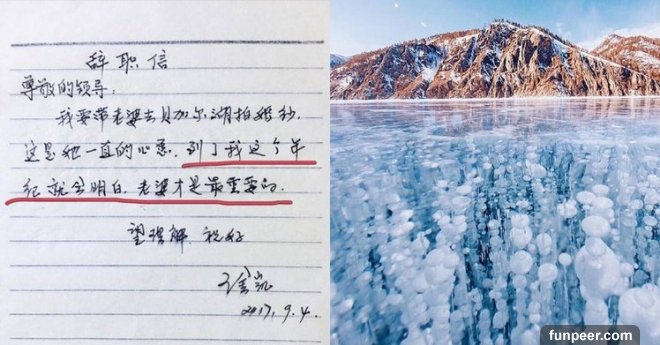 辞职信
尊敬的领导：
我要带老婆去贝加尔湖拍婚纱，
这是她一直的心愿，到了我这个年
纪就会明白，老婆才是最重要的。
望理解，祝好
徐凯
2017.9.4.
funpeer.com